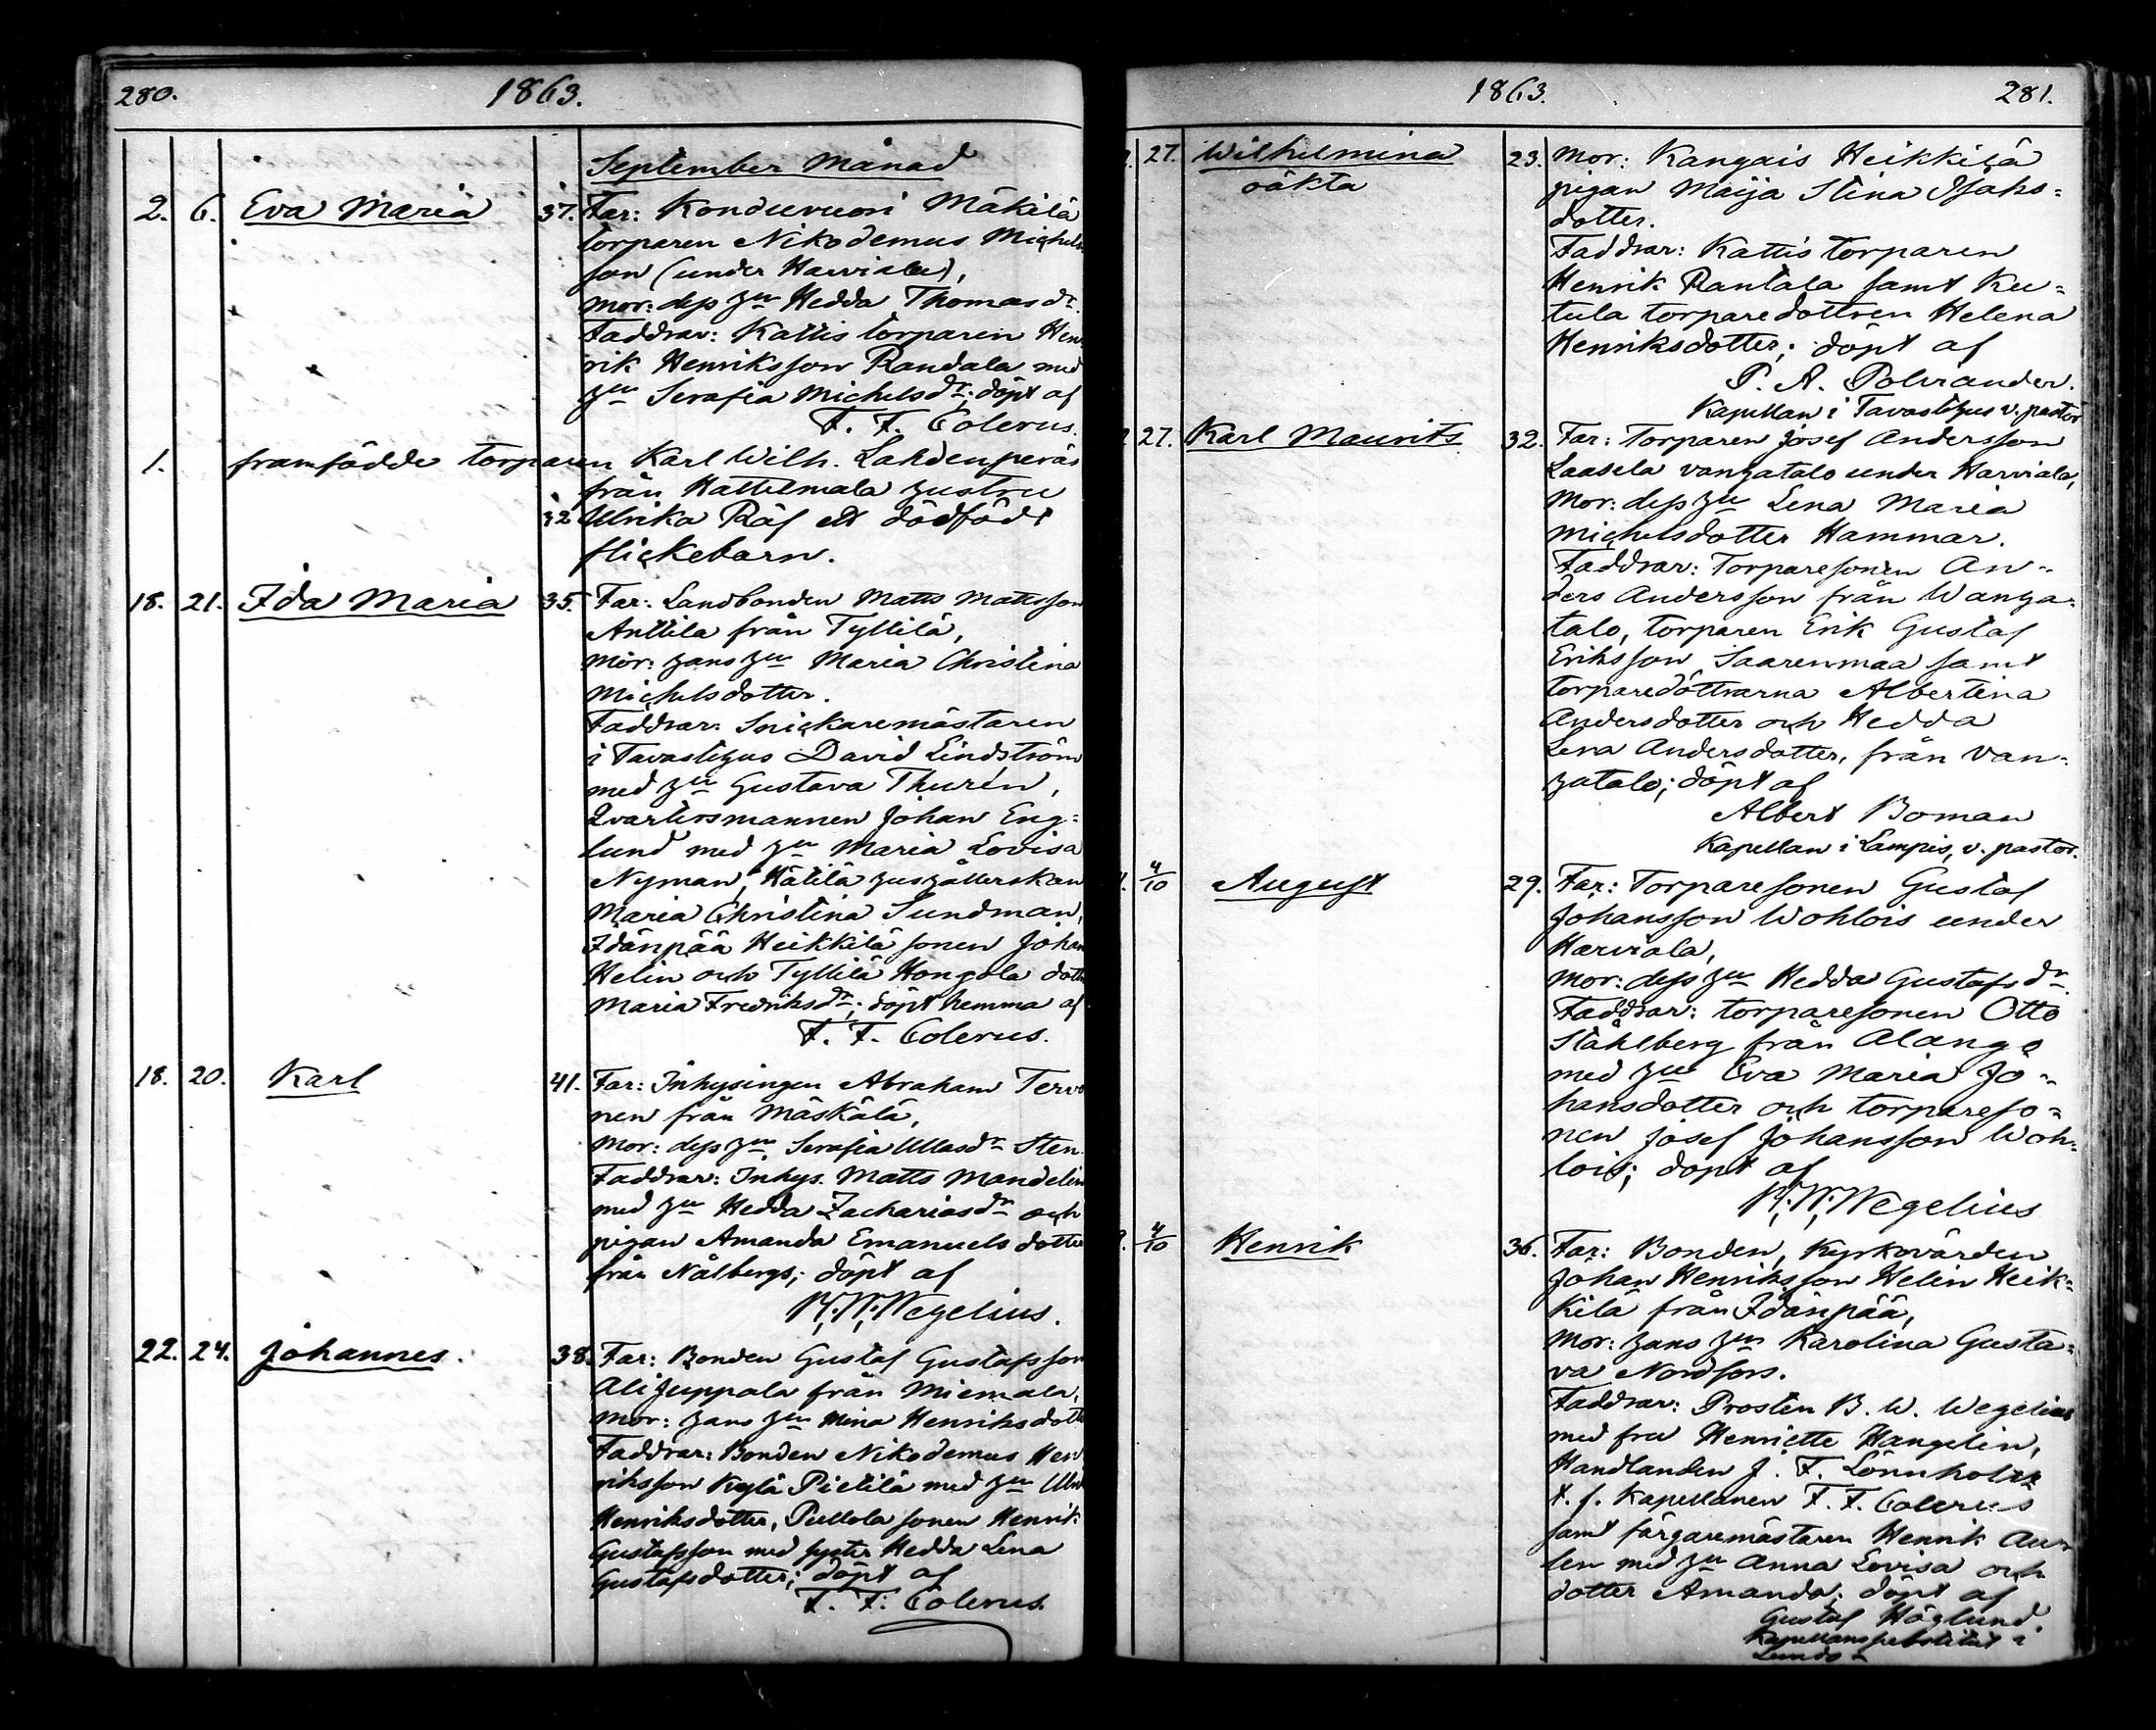 280. 1863.
September Månad
2. 6. Eva Maria 37. Far: Konduvuori Mäkilä
torparen Nikodemus Michels-
son (under Harviala),
Mor: dess hu Hedda Thomasdr.
Faddrar: Kattis torparen Hen-
rik Henriksson Randala med
hu Serafia Michelsdr; döpt af
F. F. Colerus.
1. framfödde torparen Karl Wilh. Lahdenperäs
från Hattelmala hustru
32 Ulrika Räf ett dödfödt
flickebarn.
18. 21. Ida Maria 35. Far: Landbonden Matts Mattsson
Anttila från Tyllilä,
Mor: hans hu Maria Christina
Michelsdotter.
Faddrar: Snickaremästaren
i Tavastehus David Lindström
med hu Gustava Thurén,
Qvartersmannen Johan Eng-
lund med hu Maria Lovisa
Nyman, Hätilä hushållerskan
Maria Christina Sundman,
Idänpää Heikkilä sonen Johan
Helin och Tyllilä Hongola dott
Maria Fredriksdr; döpt hemma af
F. F. Colerus.
18. 20. Karl 41. Far: Inhysingen Abraham Tervo
nen från Mäskälä,
Mor: dess hu Serafia Ullasdr Sten.
Faddrar: Inhys. Matts Mandelin
med hu Hedda Zachariasdr och
pigan Amanda Emanuels dotter
från Nålbergs; döpt af
B. W. Wegelius.
22. 24. Johannes. 38. Far: Bonden Gustaf Gustafsson
Alihuppala från Miemala,
Mor: hans hu Mina Henriksdott
Faddrar: Bonden Nikodemus Hen
riksson Kylä Pietilä med hu Ulri
Henriksdotter, Pullola sonen Henrik
Gustafsson med syster Hedda Lena
Gustafsdotter; döpt af
F. F. Colerus.
1863. 281.
27. Wilhelmina 23. Mor: Kangais Heikkilä
oäkta pigan Maija Stina Isaks-
dotter.
Faddrar: Kattis torparen
Henrik Rantala samt Ku-
tula torparedottren Helena
Henriksdotter; döpt af
P. A. Polviander.
Kapellan i Tavastehus v. pastor
27. Karl Maurits 32. Far: Torparen Josef Andersson
Laasela vangatalo under Harviala,
Mor: dess hu Lena Maria
Michelsdotter Hammar.
Faddrar: Torparesonen An-
ders Andersson från Wanha-
talo, torparen Erik Gustaf
Eriksson Saarenmaa samt
torparedöttrarna Albertina
Andersdotter och Hedda
Lena Andersdotter, från Van-
hatalo; döpt af
Albert Boman
Kapellan i Lampis, v. pastor.
4/10 August 29. Far: Torparesonen Gustaf
Johansson Wohlois under
Harviala,
Mor: dess hu Hedda Gustafsdr.
Faddrar: torparesonen Otto
Ståhlberg från Alange
med hu Eva Maria Jo-
hansdotter och torpareso-
nen Josef Johansson Woh-
lois; döpt af
B. W. Wegelius
4/10 Henrik 36. Far: Bonden, Kyrkovärden
Johan Henriksson Helin Heik-
kilä från Idänpää,
Mor: hans hu Karolina Gusta-
va Nordfors.
Faddrar: Prosten B. W. Wegelius
med fru Henriette Hangelin,
Handlanden J. F. Lönnholtz
t. f. Kapellanen F. F. Colerus
samt färgaremästaren Henrik Au-
len med hu Anna Lovisa och
dotter Amanda; döpt af
Gustaf Höglund.
Kapellanssubstitut i
Lundo